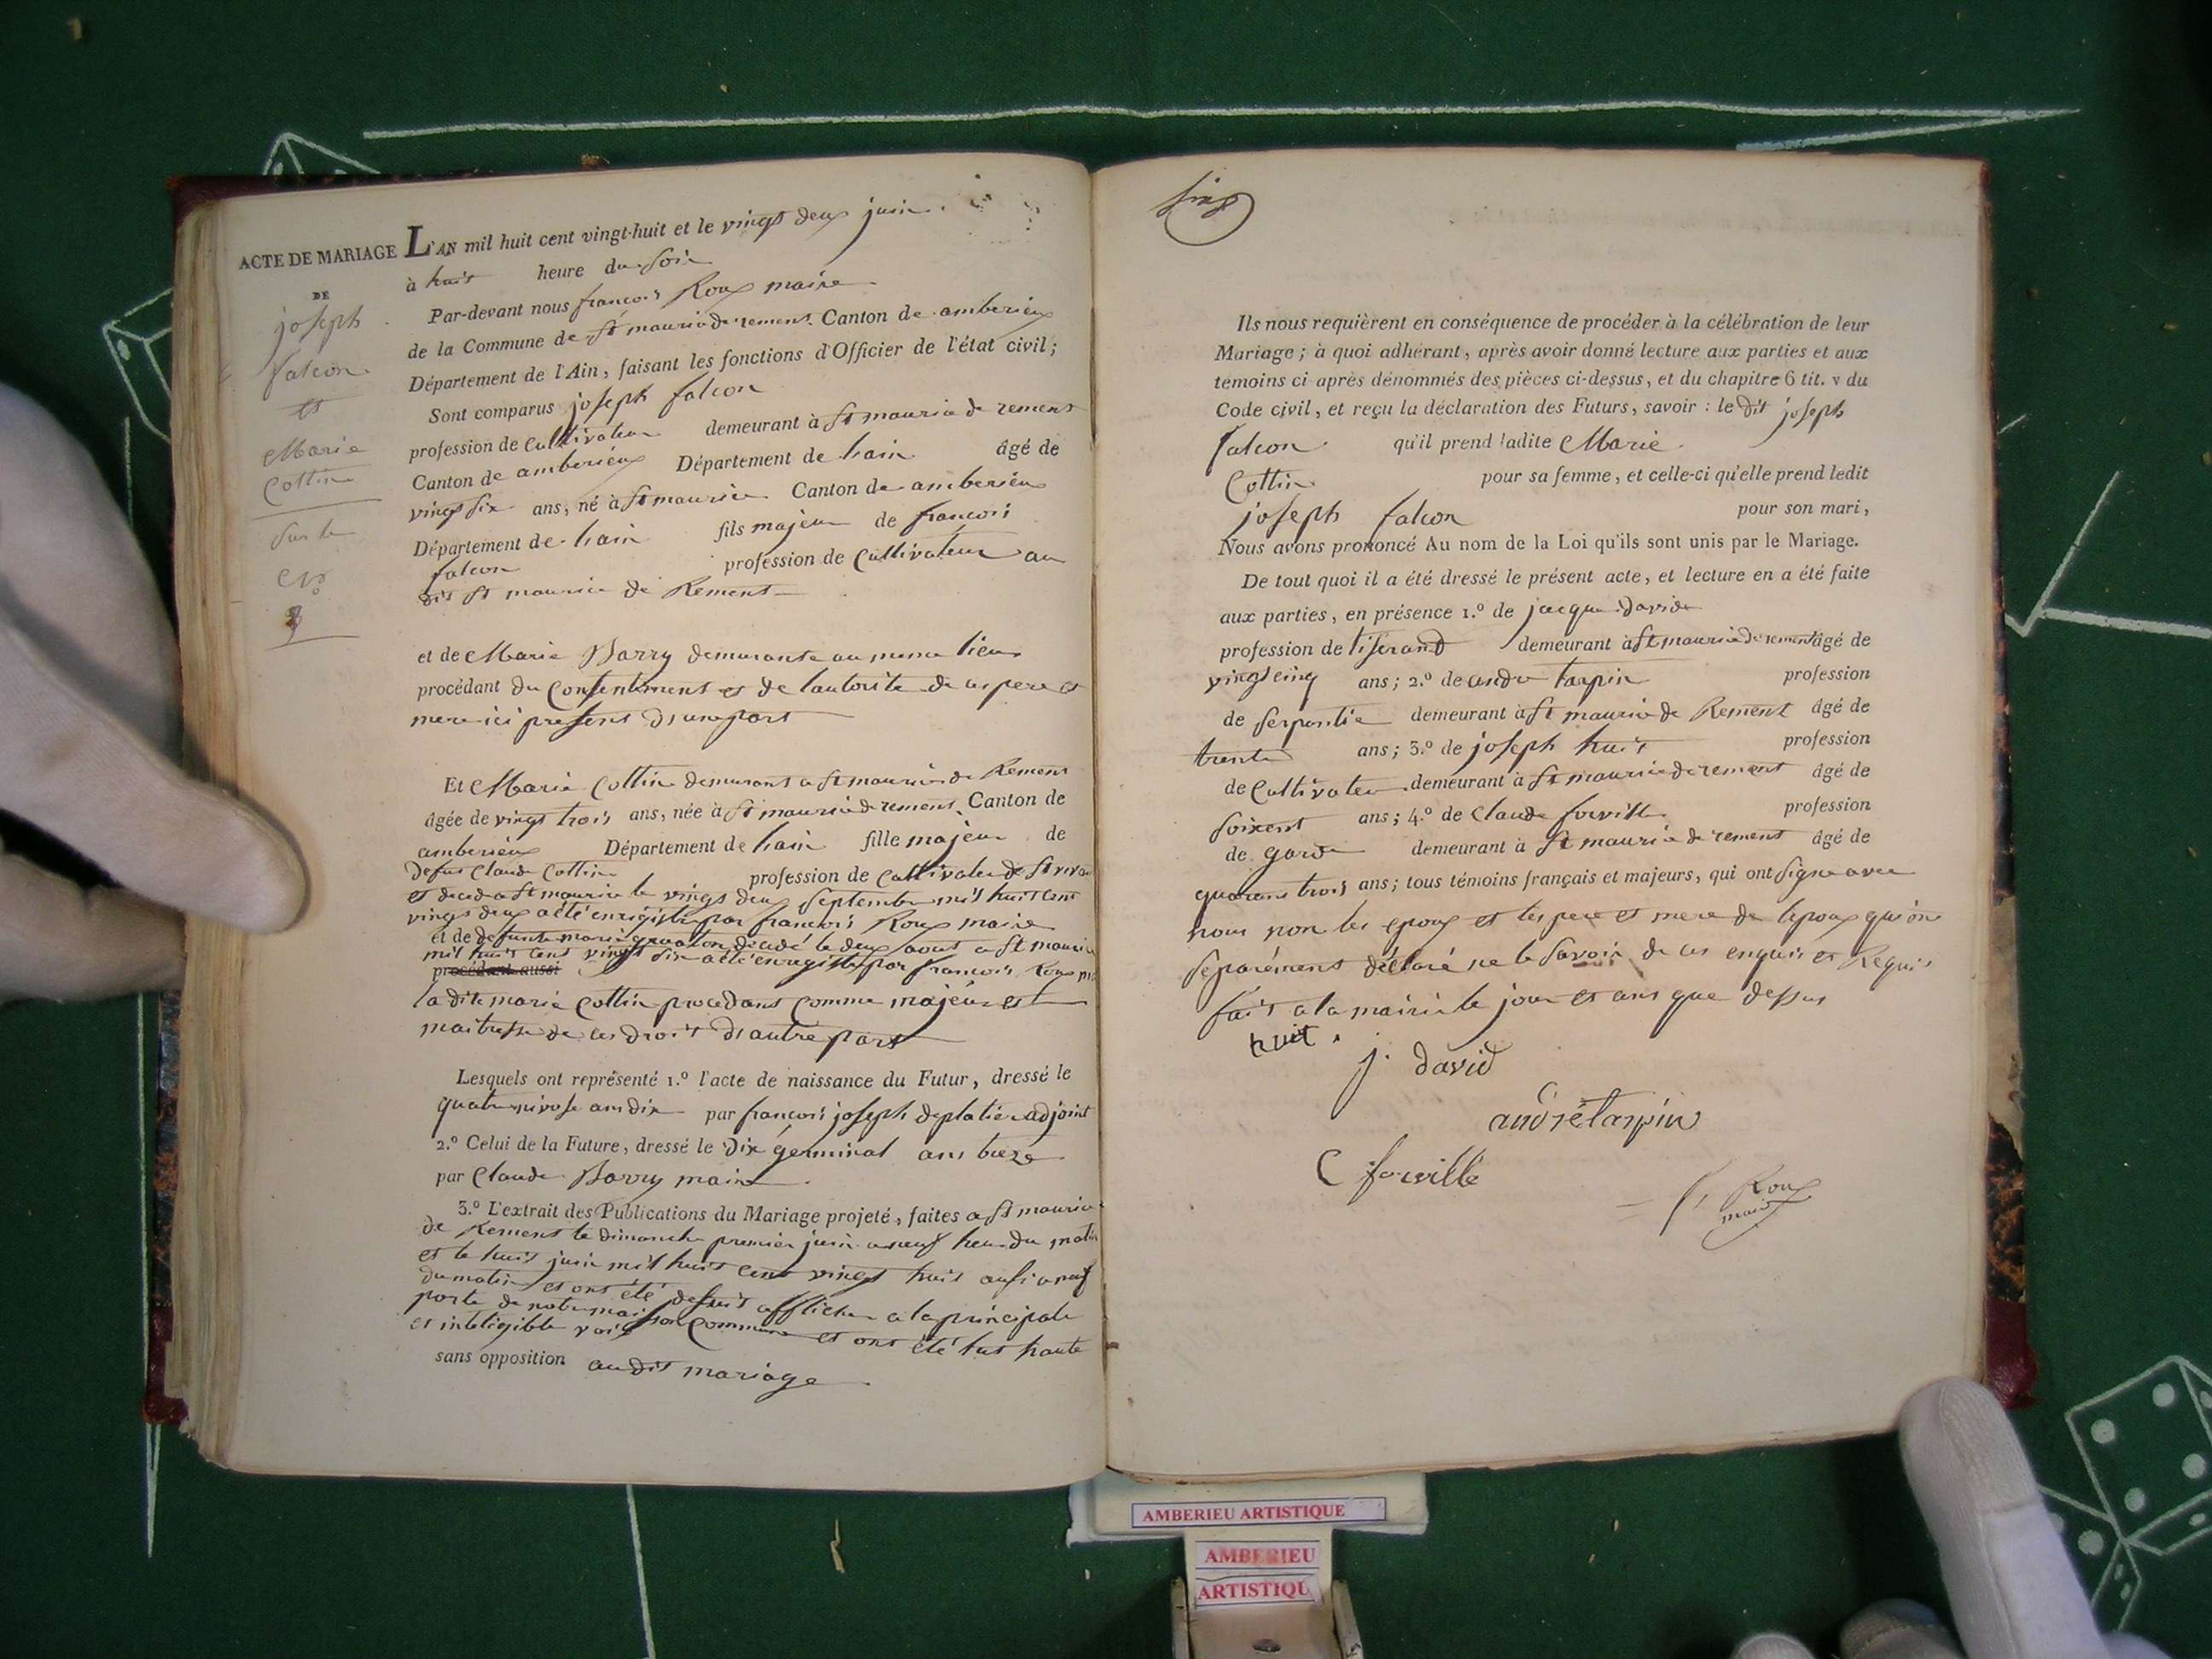 ACTE DE MARIAGE
DE
joseph
falcon
et
Marie
Collin
Sur le
No
L'AN mil huit cent vingt-huit et le vingt deux juin
à huit heure du Soir
Par-devant nous francois Roux maire
de la Commune de St mauricederement Canton de amberieux
Département de l'Ain, faisant les fonctions d'Officier de l'état civil;
Sont comparus joseph falcon
profession de Cultivateur demeurant à St maurice de rement
Canton de amberieux Département de lain âgé de
vingt six ans, né à St maurice Canton de amberieux
Département de lain fils majeur de francois
falcon profession de Cultivateur au
dit St maurice de Rement
et de Marie Barry demurante au meme lieu
procédant du Consentement et de lautorite de ces pere et
mere ici present d'une part
Et Marie Collin demurant a St maurice de Rement
âgée de vingt trois ans, née à St maurice de rement Canton de
amberieux Département de lain fille majeur de
defunt Claude Collin profession de Cultivateur de St
et decedé a St maurice le vingt deux Septembre mil huit cent
vingt deux acte enregistre par francois Roux maire
et de defunte marie decedé le deux aout a St maurice
mil huit cent vingt six acte enregistre par francois Roux
procédant aussi
la dite marie Collin procedant comme majeur et
maitresse de ces droit d'autre part
Lesquels ont représenté 1.º l'acte de naissance du Futur, dressé le
quatre nivose an dix par francois joseph deplatiere adjoint
2.º Celui de la Future, dressé le Dix germinal ans treze
par Claude Barry maire
3.º L'extrait des Publications du Mariage projeté, faites a St maurice
de Rement le dimanche premier juin a neuf heure du matin
et le huit juin mil huit cent vingt huit ausi a neuf
du matin et ont été desuit afficher a la principale
porte de notre maison Commune et ont été lut haute
et inteligible voix
sans opposition audit mariage
Ils nous requièrent en conséquence de procéder à la célébration de leur
Mariage; à quoi adhérant, après avoir donné lecture aux parties et aux
témoins ci-après dénommés des pièces ci-dessus, et du chapitre 6 tit. v du
Code civil, et reçu la déclaration des Futurs, savoir : le dit joseph
falcon qu'il prend ladite Marie
Collin pour sa femme, et celle-ci qu'elle prend ledit
joseph falcon pour son mari,
Nous avons prononcé Au nom de la Loi qu'ils sont unis par le Mariage.
De tout quoi il a été dressé le présent acte, et lecture en a été faite
aux parties, en présence 1.º de jacque david
profession de tiserand demeurant à St maurice de rement âgé de
vingt cinq ans; 2.º de andre tarpin profession
de serpentie demeurant à St maurice de Rement âgé de
trente ans; 3.º de joseph huit profession
de Cultivateur demeurant à St maurice de rement âgé de
soixent ans; 4.º de Claude forville profession
de garde demeurant à St maurice de rement âgé de
quarant trois ans; tous témoins français et majeurs, qui ont signe avec
nous non les epoux et les pere et mere de lepoux qui on
separément déclaré ne le Savoir de ces enquis et Requis
fait a la mairie le jour et ans que dessus
huit.
j. david
andré tarpin
C forville
f. Roux
maire
AMBERIEU ARTISTIQUE
AMBERIEU
ARTISTIQU